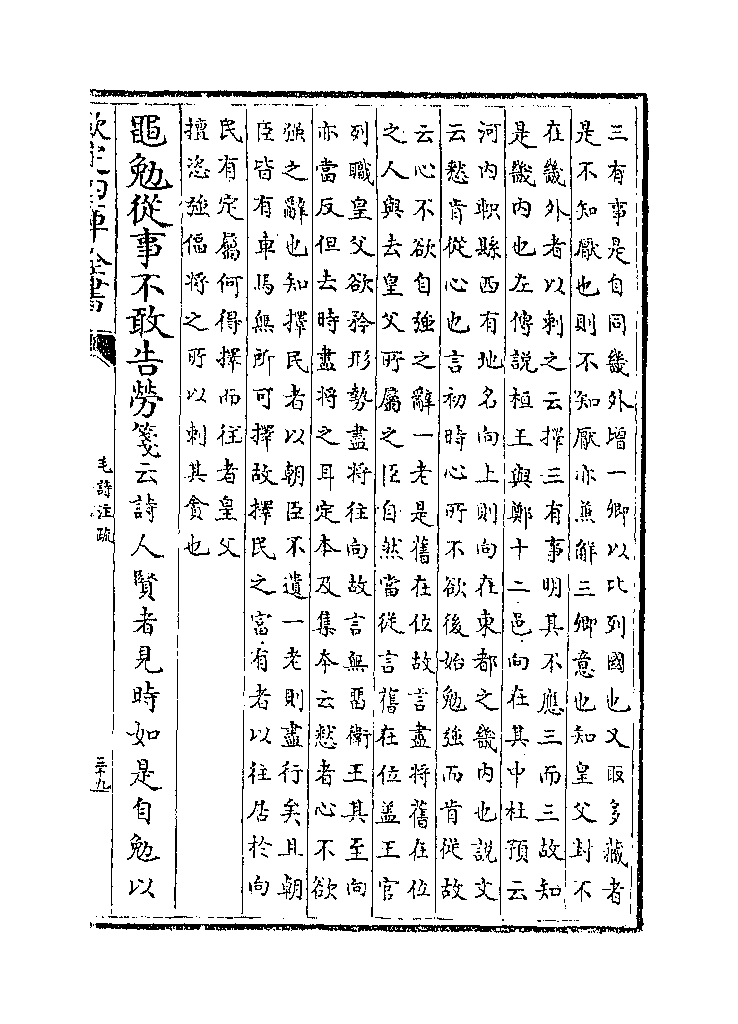 三有事是自同畿外增一卿以比列國也又取多藏者
是不知厭也則不知厭亦兼解三卿意也知皇父封不
在畿外者以刺之云擇三有事明其不應三而三故知
是畿内也左傳說桓王與鄭十二邑向在其中杜預云
河内軹縣西有地名向上則向在東都之畿内也說文
云憖肯從心也言初時心所不欲後始勉強而肯從故
云心不欲自強之辭一老是舊在位故言盡將舊在位
之人與去皇父所屬之臣自然當從言舊在位盖王官
列職皇父欲矜形勢盡將往向故言無畱衛王其至向
亦當反但去時盡將之耳定本及集本云憖者心不欲
強之辭也知擇民者以朝臣不遺一老則盡行矣且朝
臣皆有車馬無所可擇故擇民之富有者以往居於向
民有定屬何得擇而往者皇父
擅恣強偪將之所以刺其貪也
黽勉從事不敢告勞箋云詩人賢者見時如是自勉以
欽定四庫全書
毛詩注疏
三十九